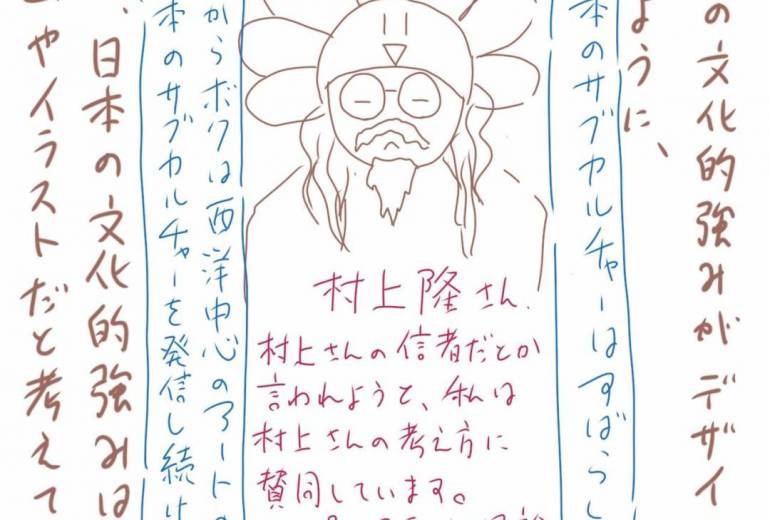 の文化的強みがデザイ
ように、
本のサブカルチャーはすばらし
村上隆さん
村上さんの信者だとか
言われようと、私は
村上さんの考え方に
賛同しています。
からボクは西洋中心のアートの
本のサブカルチャーを発信し続け
、日本の文化的強みは
やイラストだと考えて